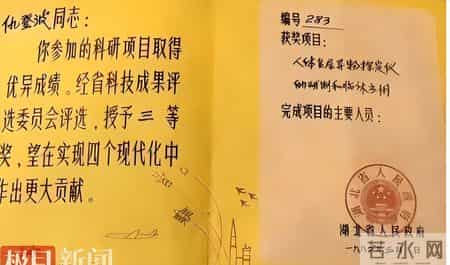 仇登波同志：
你参加的科研项目取得
优异成绩。经省科技成果评
选委员会评选，授予三等
奖，望在实现四个现代化中
作出更大贡献。
编号283
获奖项目：
人体
和临床应用
完成项目的主要人员：
湖北省人民政府
湖北省人民政府
一九八 年 月 日
极目新闻
若水网